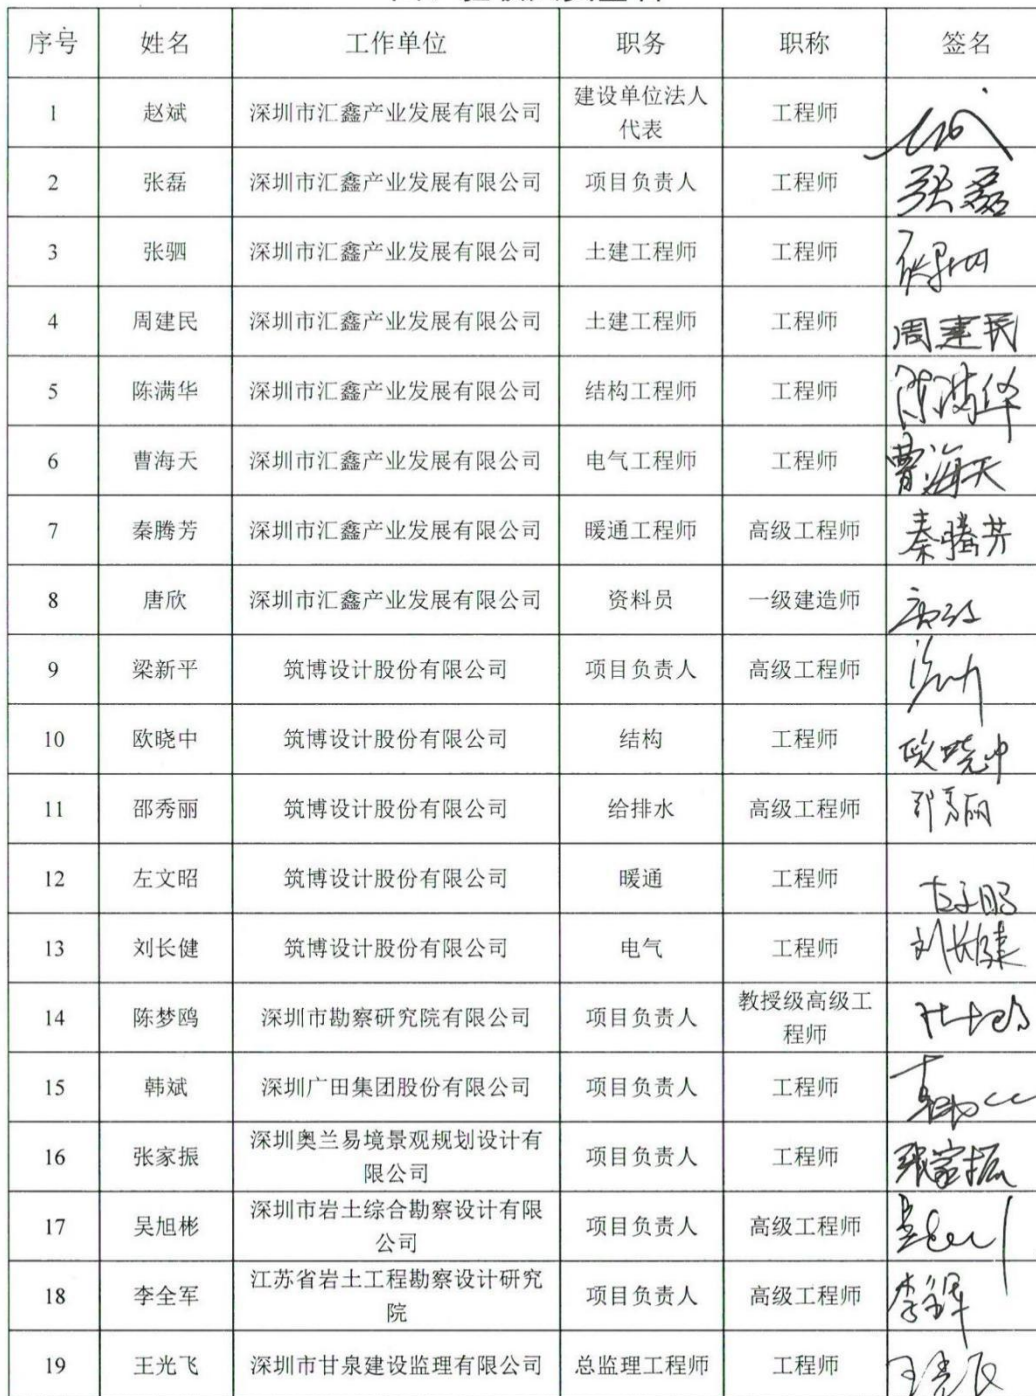 序号 姓名 工作单位 职务 职称 签名
1 赵斌 深圳市汇鑫产业发展有限公司 建设单位法人
代表 工程师
2 张磊 深圳市汇鑫产业发展有限公司 项目负责人 工程师 张磊
3 张驷 深圳市汇鑫产业发展有限公司 土建工程师 工程师
4 周建民 深圳市汇鑫产业发展有限公司 土建工程师 工程师 周建民
5 陈满华 深圳市汇鑫产业发展有限公司 结构工程师 工程师 陈满华
6 曹海天 深圳市汇鑫产业发展有限公司 电气工程师 工程师 曹海天
7 秦腾芳 深圳市汇鑫产业发展有限公司 暖通工程师 高级工程师 秦腾芳
8 唐欣 深圳市汇鑫产业发展有限公司 资料员 一级建造师
9 梁新平 筑博设计股份有限公司 项目负责人 高级工程师
10 欧晓中 筑博设计股份有限公司 结构 工程师 欧晓中
11 邵秀丽 筑博设计股份有限公司 给排水 高级工程师 邵秀丽
12 左文昭 筑博设计股份有限公司 暖通 工程师
13 刘长健 筑博设计股份有限公司 电气 工程师 刘长健
14 陈梦鸥 深圳市勘察研究院有限公司 项目负责人 教授级高级工
程师
15 韩斌 深圳广田集团股份有限公司 项目负责人 工程师
16 张家振 深圳奥兰易境景观规划设计有
限公司 项目负责人 工程师 张家振
17 吴旭彬 深圳市岩土综合勘察设计有限
公司 项目负责人 高级工程师
18 李全军 江苏省岩土工程勘察设计研究
院 项目负责人 高级工程师 李全军
19 王光飞 深圳市甘泉建设监理有限公司 总监理工程师 工程师 王光飞